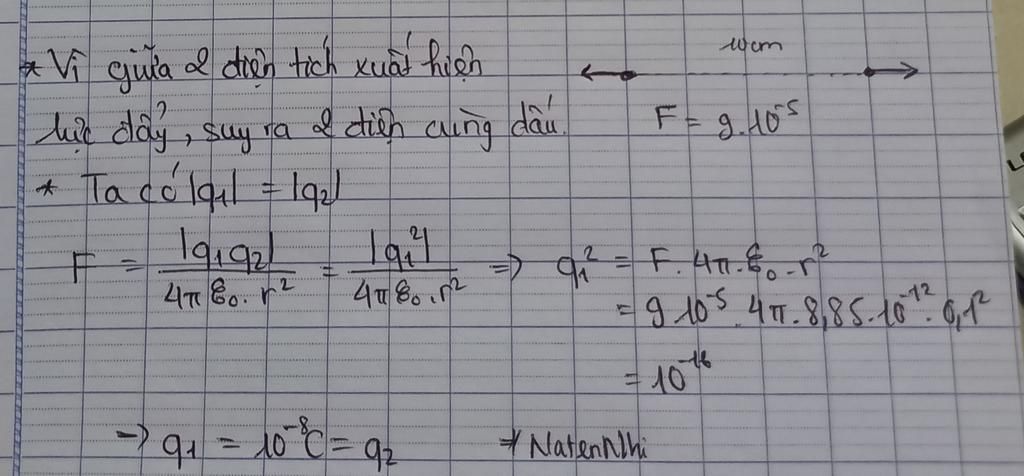 * Vì giữa 2 điện tích xuất hiện
lực đẩy, suy ra 2 điện cùng dấu.
10cm
F = 9.10⁻⁵
* Ta có |q₁| = |q₂|
F = |q₁q₂| / 4πε₀.r² = |q₁²| / 4πε₀.r² => q₁² = F.4π.ε₀.r²
= 9.10⁻⁵.4π.8,85.10⁻¹².0,1²
= 10⁻¹⁶
→ q₁ = 10⁻⁸C = q₂
* NatennNhi